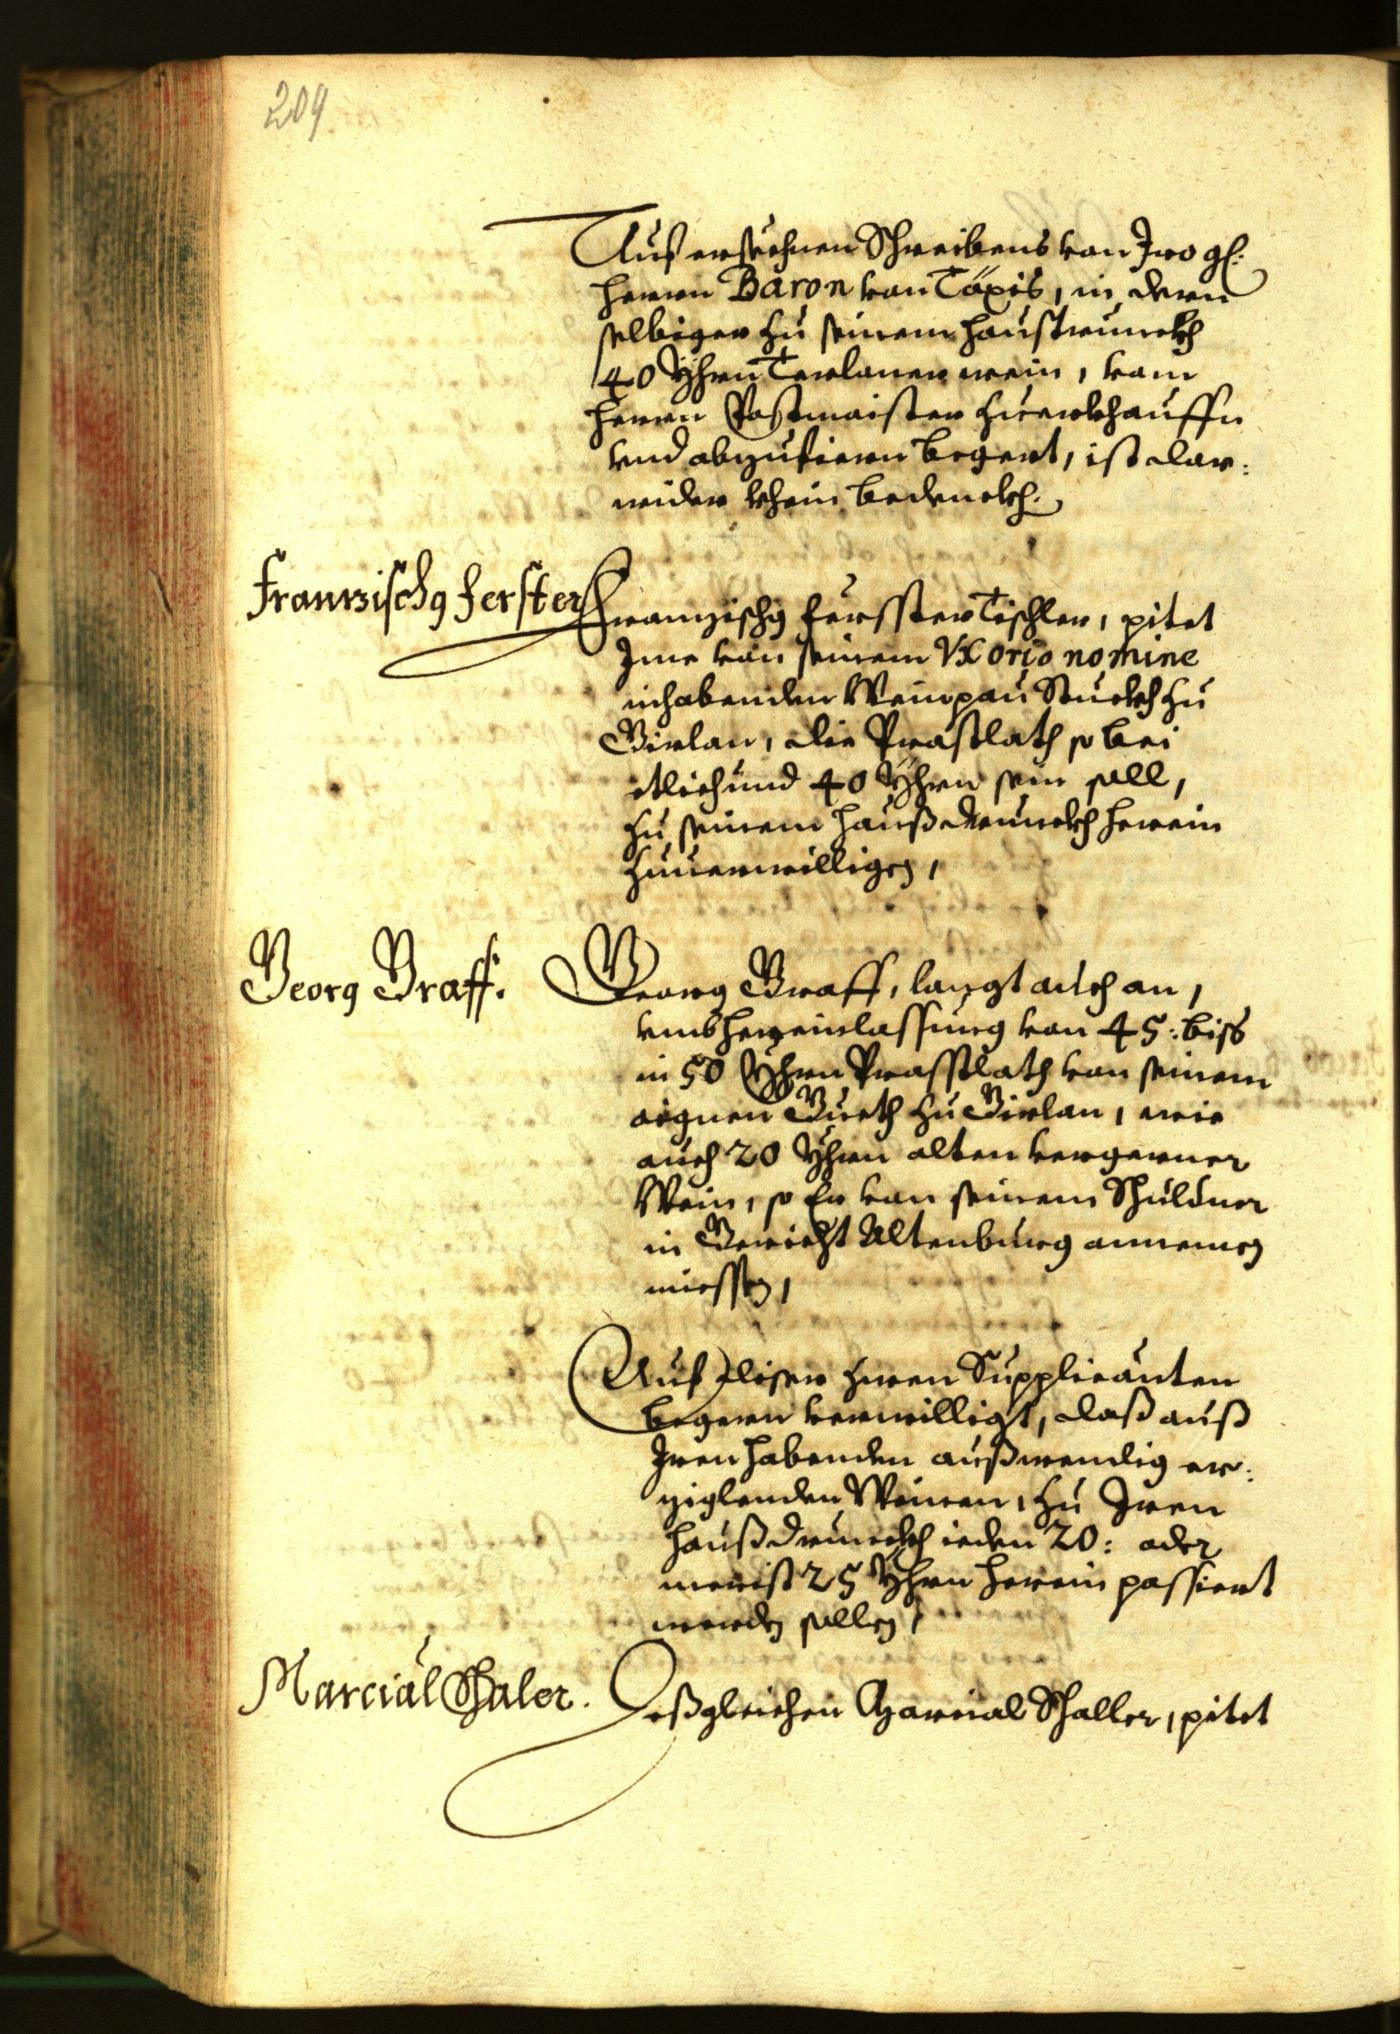 209
Auf ersuechen Schreibens von Iro gl:
herrn Baron von Täxis, in deren
selbiger zu seinem haustrunckh
40 Yhrn Terlaner wein, vom
herrn Postmaister zuerkhauffn
vnd abzufiern begert, ist dar:
wider khein bedenckh.
Franzischg ferster
Franzischg ferster Tischler, pitet
Ime von seinem Vxorio nomine
inhabenden Weinpau Stuckh zu
Girlan, die Praslath so bei
etlich und 40 Yhrn sein soll,
zu seinem haußdrunckh herein
zuuerwilligen,
Georg Graff.
Georg Graff, langt auch an,
vmb hereinlassung von 45: biss
in 50 Yhrn Prasslath von seinem
aignen Gueth zu Girlan, wie
auch 20 Yhrn alten vergerner
Wein, so Er von seinem Schuldner
in Gericht Altenburg annemen
miessen,
Auf diser zween Supplicanten
begern verwilligt, daß auß
Iren habenden außwendig er:
ziglenden Weinen, zu Iren
haußdrunckh ieden 20: oder
meist 25 Yhrn herein passiert
werden sollen,
Marcial Schaler.
Deßgleichen Marcial Schaller, pitet